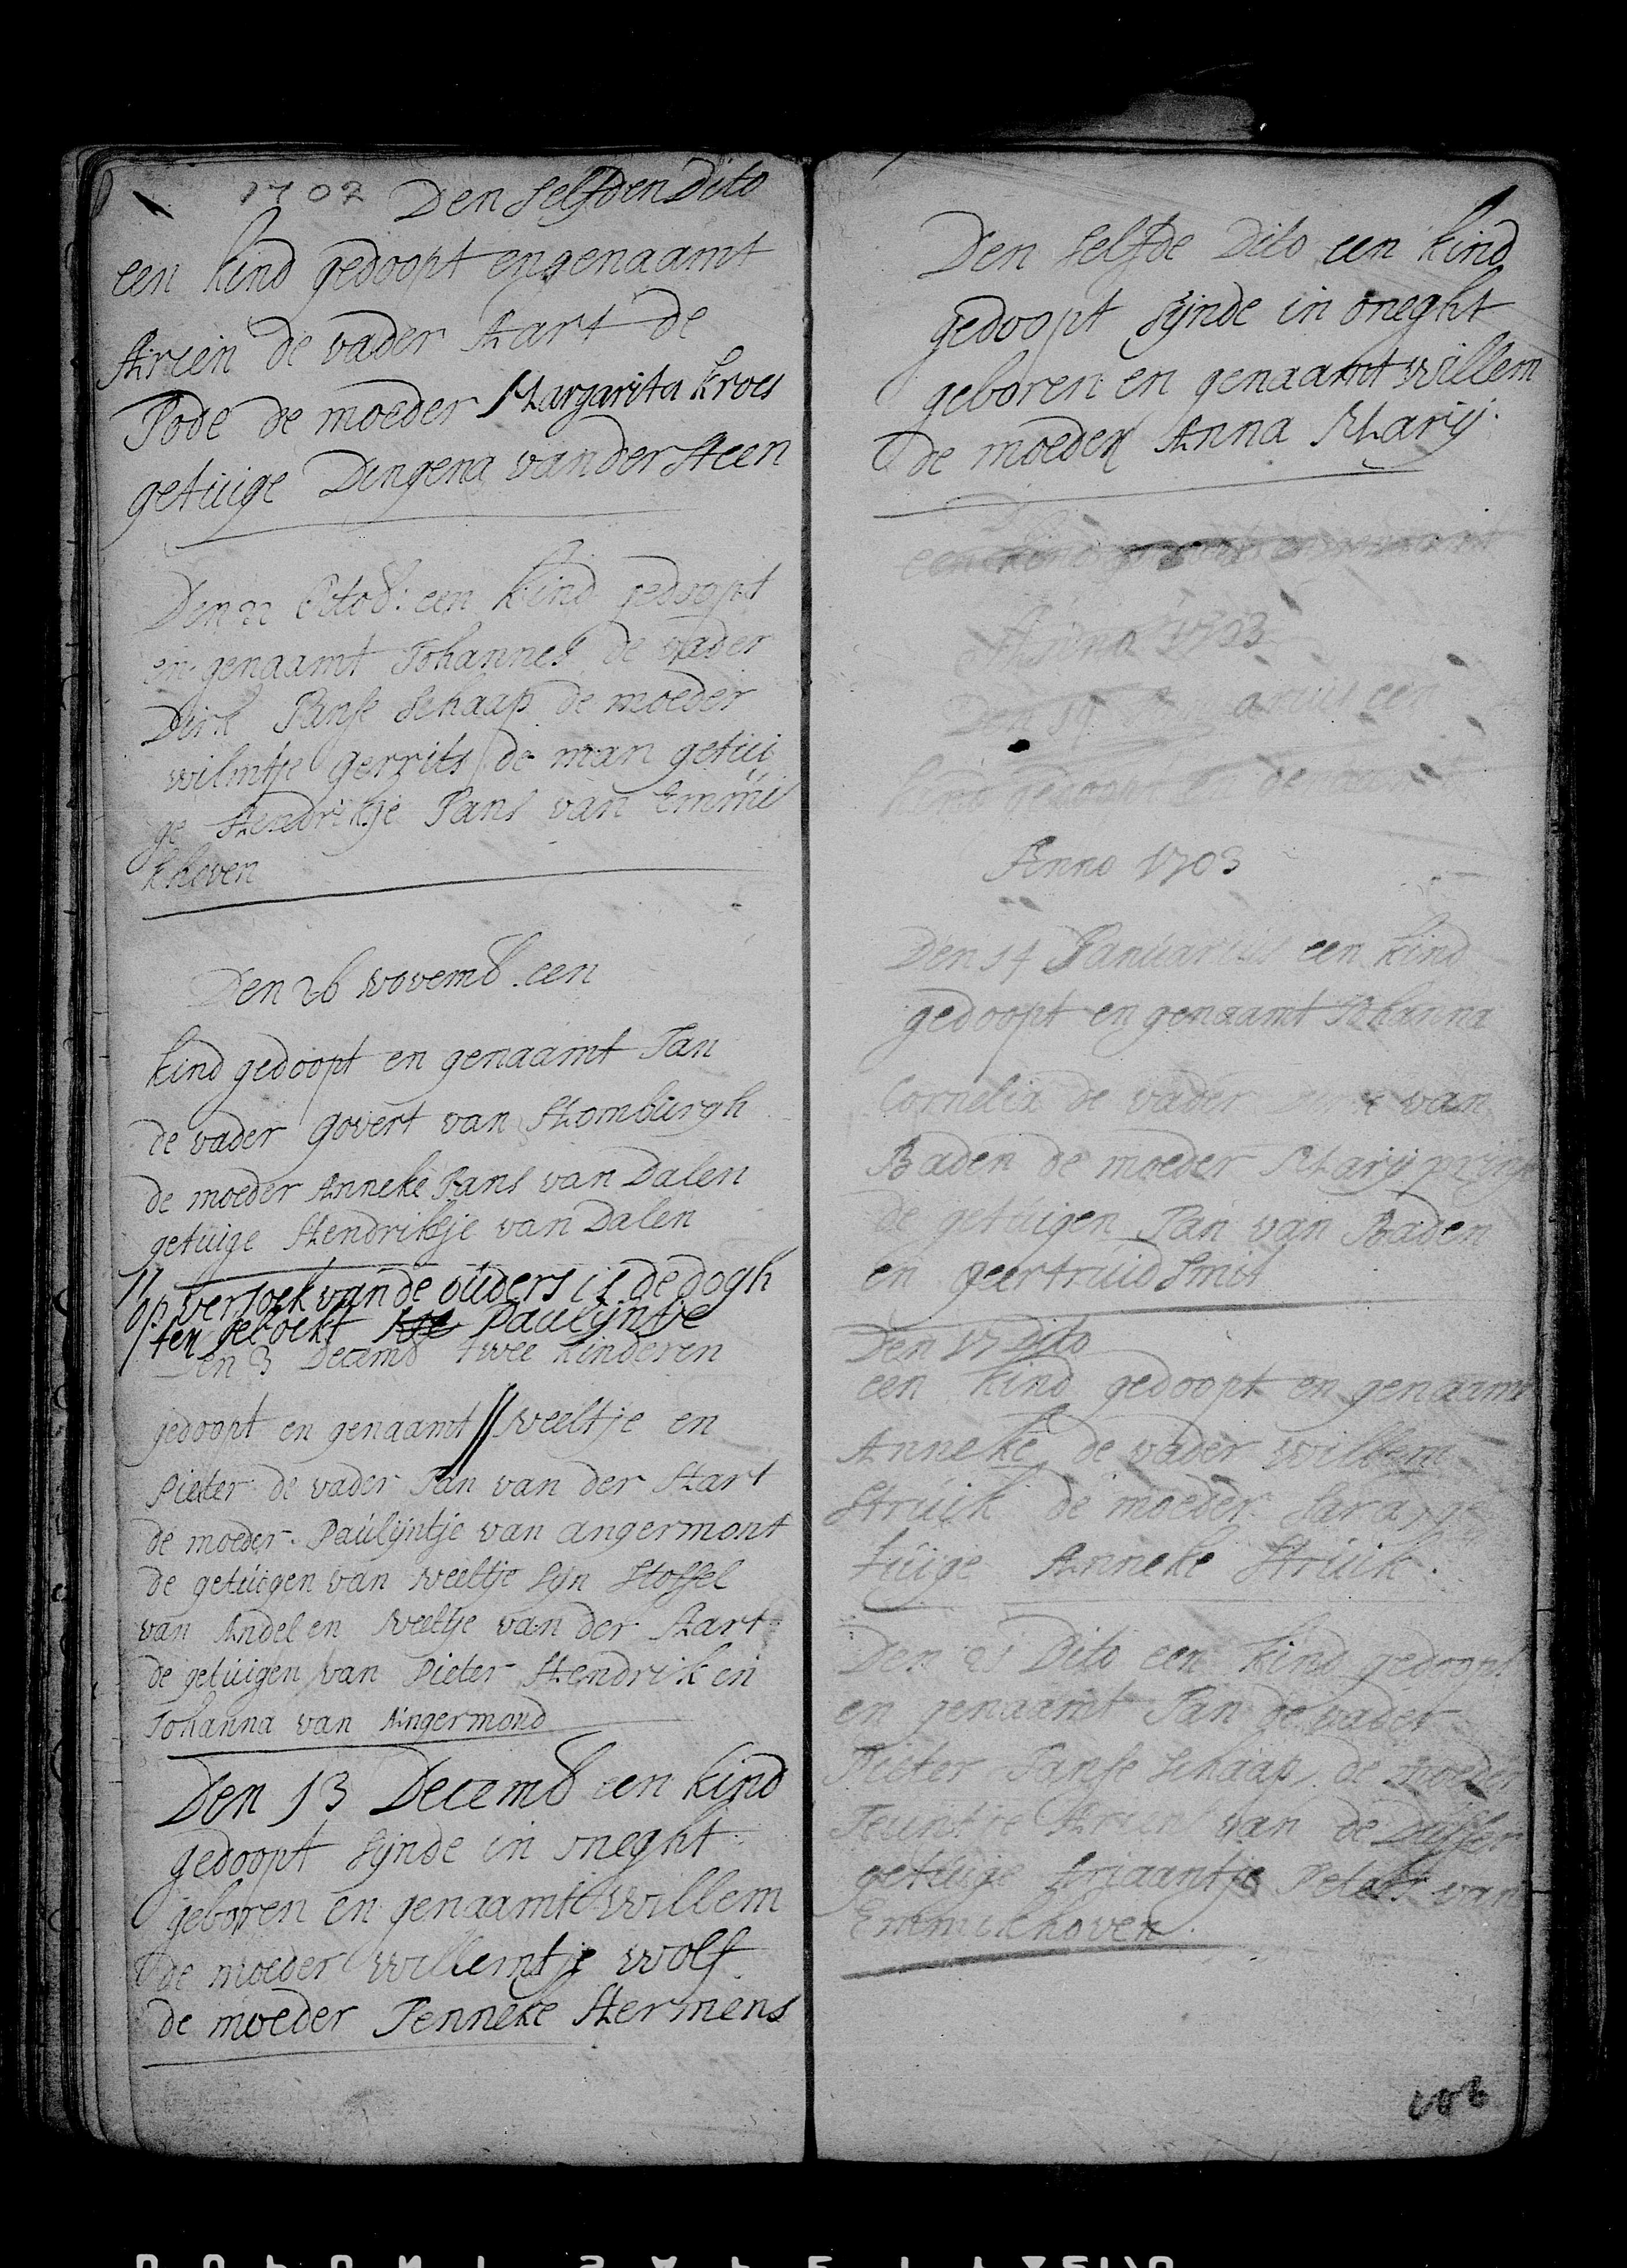 1702 Den selfden Dito
een kind gedoopt en genaamt
Arien de vader Aart de
Pode de moeder Margarita kroes
getuige Dingena vander Steen
Den 22 Octob: een kind gedoopt
en genaamt Johannes de vader
Dirk Janse Schaap de moeder
wilmtje gerrits de man getui
ge Hendrikje Jans van Emmi
khoven
Den 26 novemb. een
kind gedoopt en genaamt Jan
de vader govert van Homburgh
de moeder Anneke Jans van Dalen
getuige Hendrikje van Dalen
// op versoek van de ouders is de dogh
ter geboekt Paulijntje
Den 3 Decemb twee kinderen
gedoopt en genaamt // Neeltje en
Pieter de vader Jan van der Hart
de moeder Paulijntje van angermont
de getuigen van Neeltje sijn Stoffel
van Andel en Neeltje van der Hart
de getuigen van Pieter Hendrik en
Johanna van Angermond
Den 13 Decemb een kind
gedoopt sijnde in oneght
geboren en genaamt Willem
de moeder Willemtje Wolf
de moeder Jenneke Hermens
Den selfde Dito een kind
gedoopt sijnde in oneght
geboren en genaamt Willem
de moeder Anna Marij
een kind gedoopt en genaamt
Anno 1703
Den 14 arius een
kind gedoopt en genaamt
Anno 1703
Den 14 Januarius een kind
gedoopt en genaamt Johanna
Cornelia de vader van
Baden de moeder Marij
de getuigen Jan van Baden
en geertruid Smit
Den 17 Dito
een kind gedoopt en genaamt
Anneke de vader willem
Struik de moeder Sara ge
tuige Anneke Struik.
Den 21 Dito een kind gedoopt
en genaamt Jan de vader
Pieter Janse Schaap de moeder
Teuntje van de
getuige Ariaantje van
Emmikhoven.